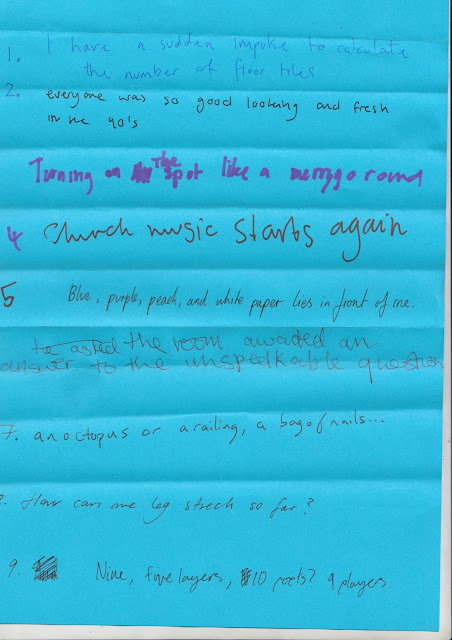 1. I have a sudden impulse to calculate
the number of floor tiles
2. everyone was so good looking and fresh
in the 90's
Turning on The spot like a merry go round
4 Church music starts again
5 Blue, purple, peach, and white paper lies in front of me.
he asked the room awaited an
answer to the unspeakable question
7. an octopus or a railing, a bag of nails...
How can me leg strech so far?
9. Nine, five layers, 10 poets? 9 players.